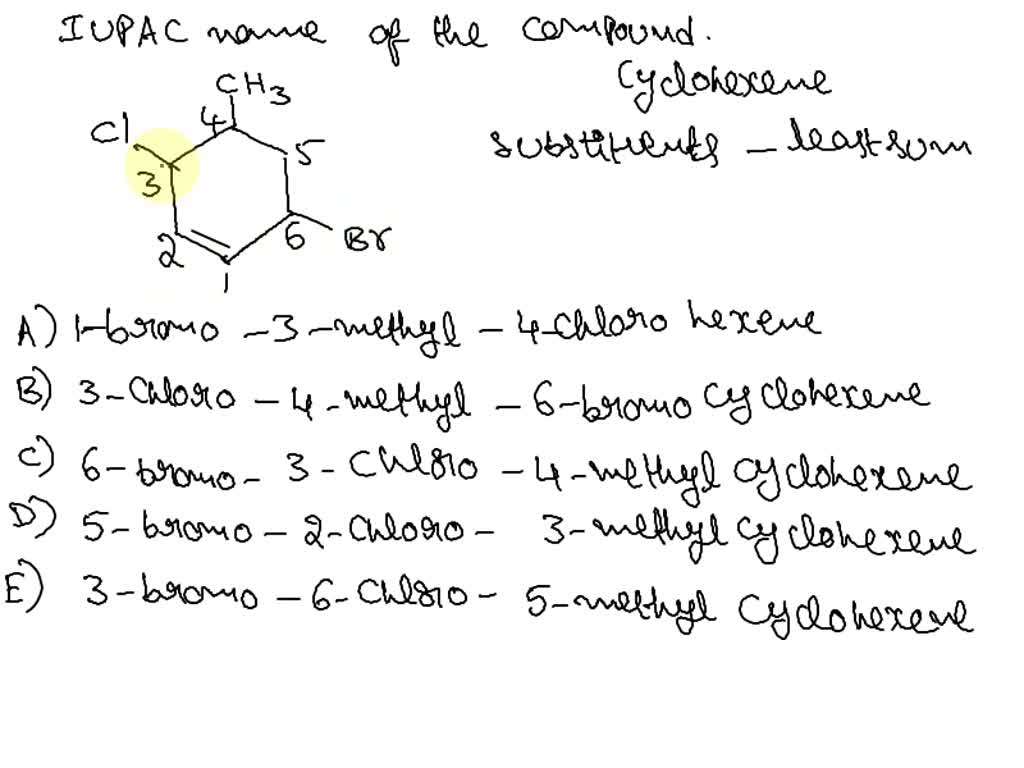 IUPAC name of the compound.
Cyclohexene
substituents - least sum
CH3
Cl
4
5
3
2
6
Br
1
A) 1-bromo - 3 - methyl - 4-chloro hexene
B) 3-Chloro - 4-methyl - 6-bromo cyclohexene
C) 6-bromo - 3 - Chloro - 4-methyl cyclohexene
D) 5-bromo - 2-Chloro - 3-methyl cyclohexene
E) 3-bromo - 6-Chloro - 5-methyl cyclohexene